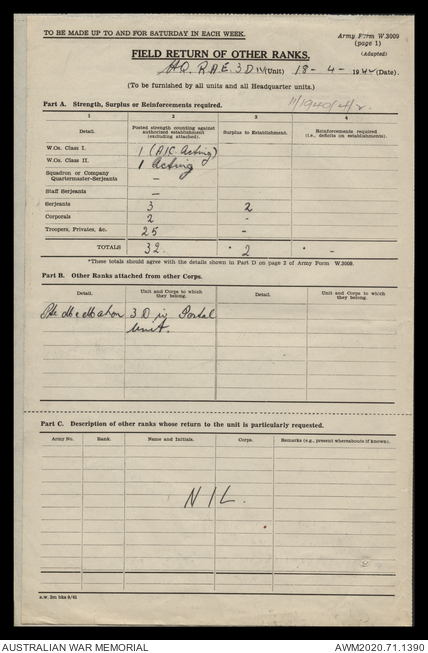 TO BE MADE UP TO AND FOR SATURDAY IN EACH WEEK.
Army Form W.3009
(page 1)
(Adapted)
FIELD RETURN OF OTHER RANKS.
HQ. R.A.E. 3 DIV (Unit) 18-4-1942 (Date).
(To be furnished by all units and all Headquarter units.)
11/1940/4/2.
Part A. Strength, Surplus or Reinforcements required.
1 2 3 4
Detail. Posted strength counting against authorised establishment (excluding attached). Surplus to Establishment. Reinforcements required (i.e., deficits on establishments).
W.Os. Class I. 1 (A/C. Acting)
W.Os. Class II. 1 Acting
Squadron or Company
Quartermaster-Serjeants –
Staff Serjeants –
Serjeants 3 2
Corporals 2 -
Troopers, Privates, &c. 25 -
TOTALS 32. * 2 * -
*These totals should agree with the details shown in Part D on page 2 of Army Form W.3009.
Part B. Other Ranks attached from other Corps.
Detail. Unit and Corps to which they belong. Detail. Unit and Corps to which they belong.
Pte McMahon 3 Div Postal
Unit.
Part C. Description of other ranks whose return to the unit is particularly requested.
Army No. Rank. Name and Initials. Corps. Remarks (e.g., present whereabouts if known).
NIL.
a.w. 2m bks 9/41
AUSTRALIAN WAR MEMORIAL
AWM2020.71.1390